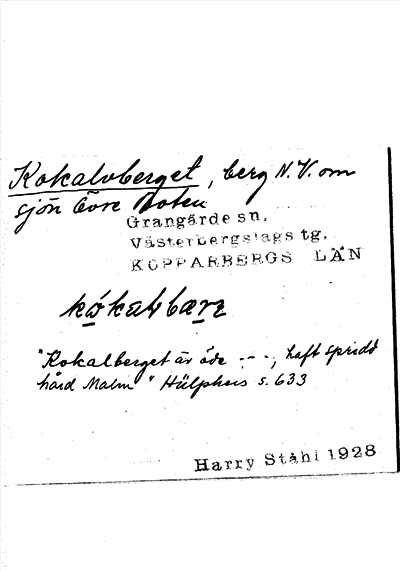 Kokalvberget, berg N.V. om
sjön Övre Noten
Grangärde sn,
Västerbergslags tg.
KOPPARBERGS LÄN
kókalvbærg
"Kokalberget är öde - - -, haft spridd
hård Malm" Hülphers s. 633
Harry Ståhl 1928